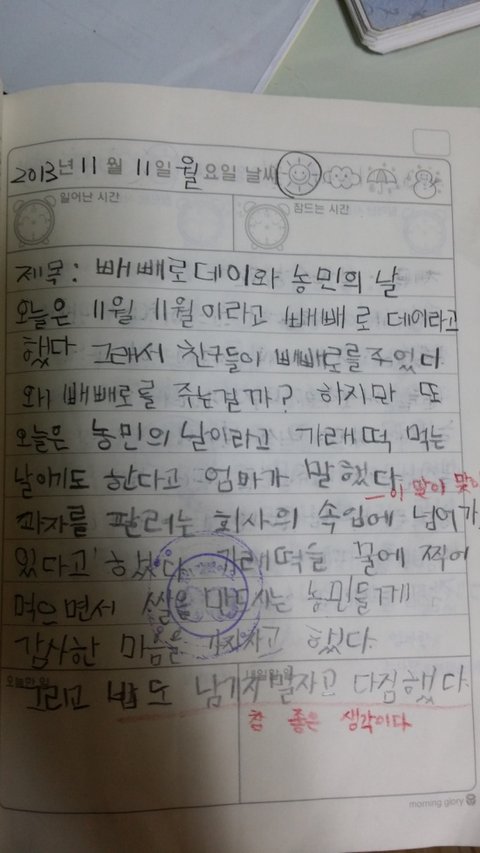 2013년 11월 11일 월요일 날씨
일어난 시간 잠드는 시간
제목: 빼빼로데이와 농민의 날
오늘은 11월 11월이라고 빼빼로 데이라고
했다 그래서 친구들이 빼빼로를 주었다.
왜 빼빼로를 주는걸까? 하지만 또
오늘은 농민의 날이라고 가래떡 먹는
날이기도 한다고 엄마가 말했다.
이 말이
과자를 팔려는 회사의 속임에 넘어가
있다고 했다. 가래떡을 꿀에 찍어
먹으면서 쌀을 농민들게
감사한 마음을 가지자고 했다.
오늘한 일
그리고 밥도 남기지말자고 다짐했다.
참 좋은 생각이다
morning glory